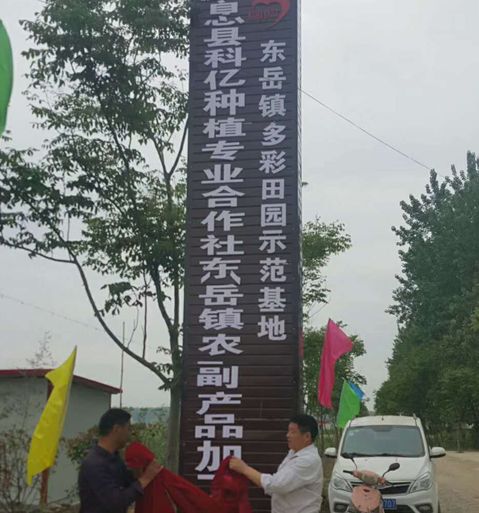 息县科亿种植专业合作社东岳镇农副产品加
东岳镇多彩田园示范基地